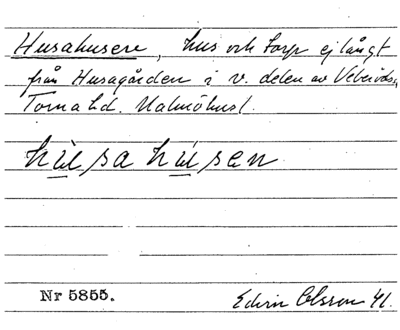 Husahusen, hus och torp ej långt
från Husagården i v. delen av Veberöds,
Torna hd. Malmöhus l.
hu̲sa hu̲sen
Nr 5855.
Edvin Olsson 41.